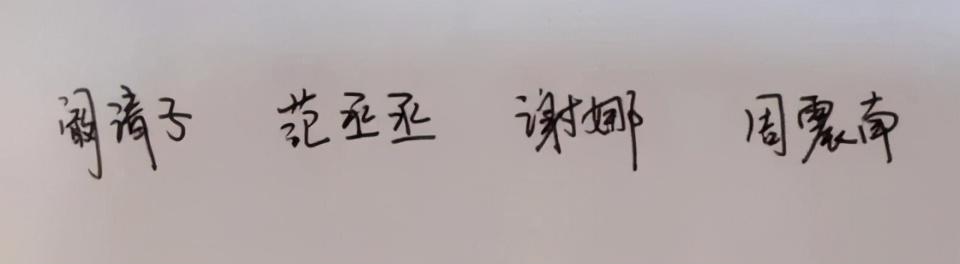 阚清子 范丞丞 谢娜 周震南